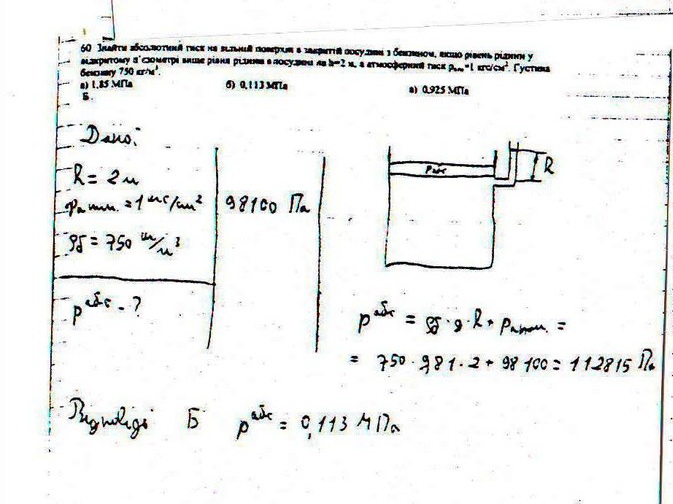 60 Знайти абсолютний тиск на вільній поверхні в закритій посудині з бензином, якщо рівень рідини у
відкритому п'єзометрі вище рівня рідини в посудині на h=2 м, а атмосферний тиск pатм=1 кгс/см². Густина
бензину 750 кг/м³.
а) 1,85 МПа б) 0,113 МПа в) 0,925 МПа
Б
Дано:
h = 2 м
pатм. = 1 кгс/см² 98100 Па
ρδ = 750 кг/м³
p абс - ?
Pабс
h
p абс = ρδ · g · h + pатм. =
= 750 · 9,81 · 2 + 98100 = 112815 Па
Відповідь Б p абс = 0,113 МПа